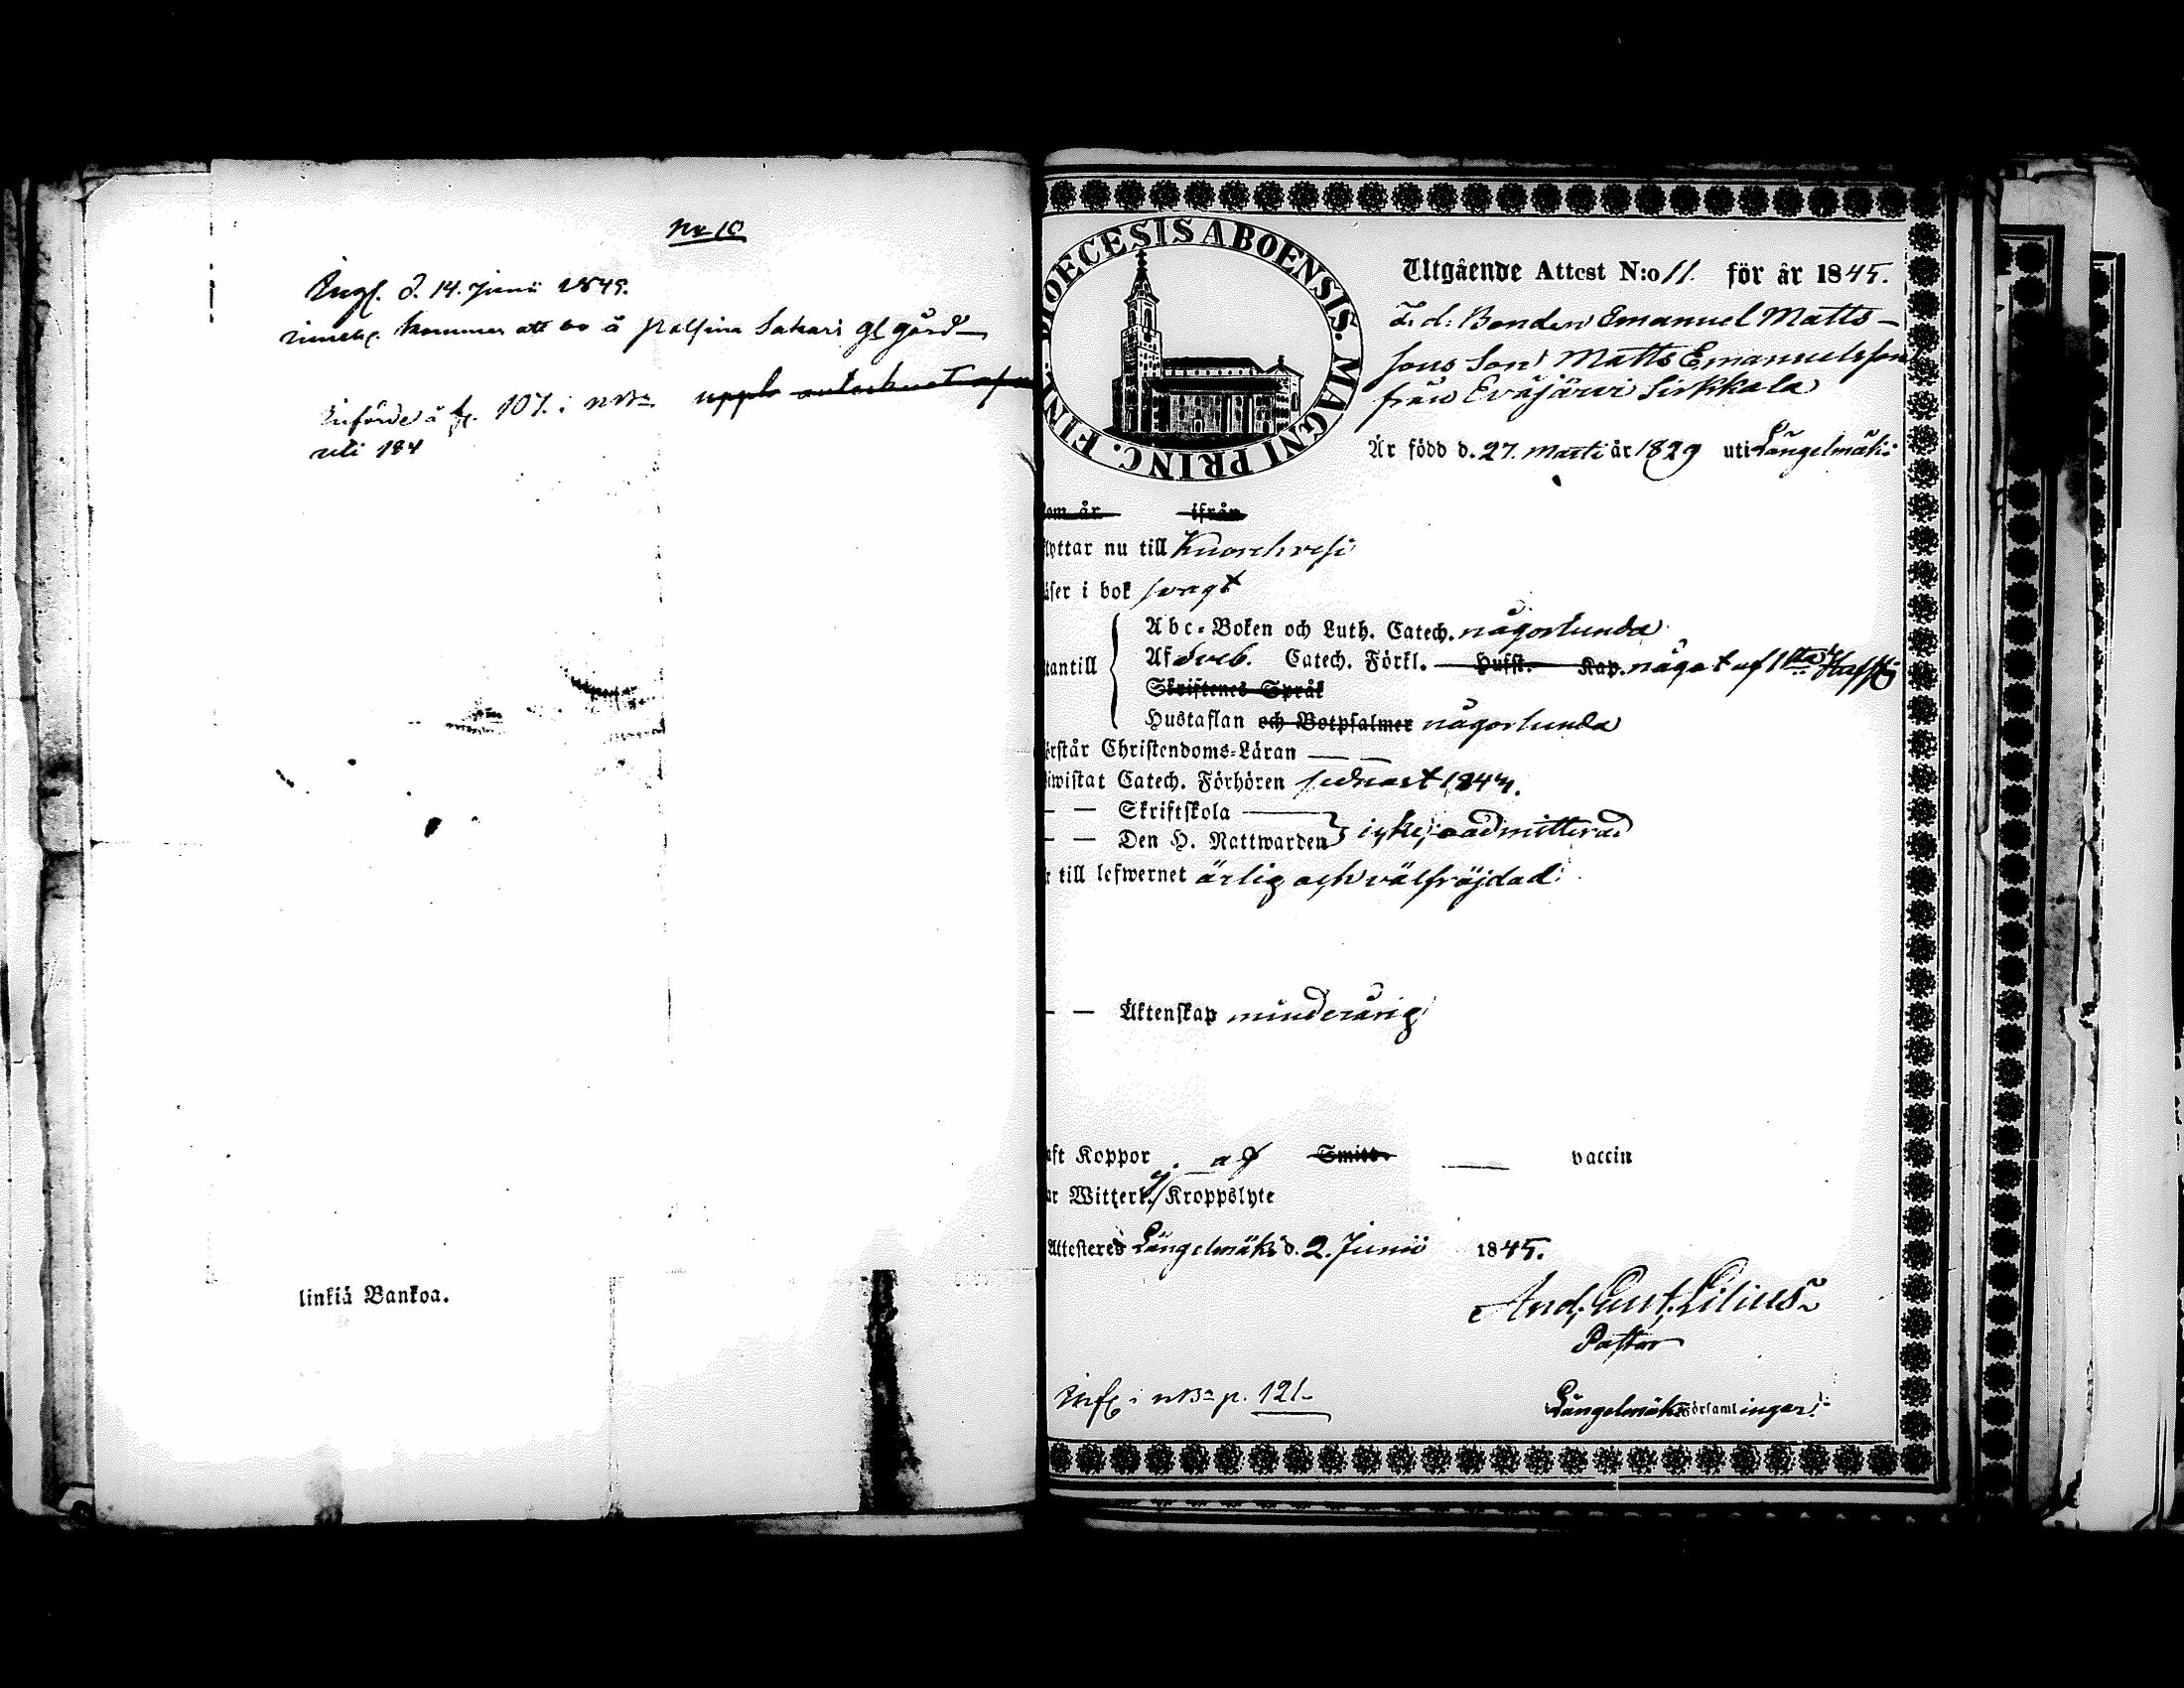 No 10
Ingf. d. 14. Junii 1845.
kommer att bo å Palsina Sakari gård
Införde å p. 107. i
uti 184
linkiä Bankoa.
DIOECESIS ABOENSIS. MAGNI PRINC. FINL.
Utgående Attest N:o 11. för år 1845.
F. d. Bonden Emanuel Matts-
sons Son Matts Emanuelsson
från Eväjärvi Sirkkala
Är född d. 27. Marti år 1829 uti Längelmäki
om år ifrån
lyttar nu till Kuorehvesi
äser i bok svagt
Abc-Boken och Luth. Catech. någorlunda
tantill Af Sveb. Catech. Förkl. Hufst. Kap. något af 1sta
Skriftenes Språk
Hustaflan och Botpsalmer någorlunda
örstår Christendoms-Läran — —
iwistat Catech. Förhören sednast 1844.
— — Skriftskola —
— — Den H. Nattwarden } icke admitterad
r till lefwernet ärlig och välfräjdad
— — Äktenskap minderårig
aft Koppor af Smitt. — vaccin
ar Witterl. ej Kroppslyte
Attesteres Längelmäki d. 2. Junii 1845.
And. Gust. Lilius
Pastor
Inf. i p. 121.
Längelmäki församlingar